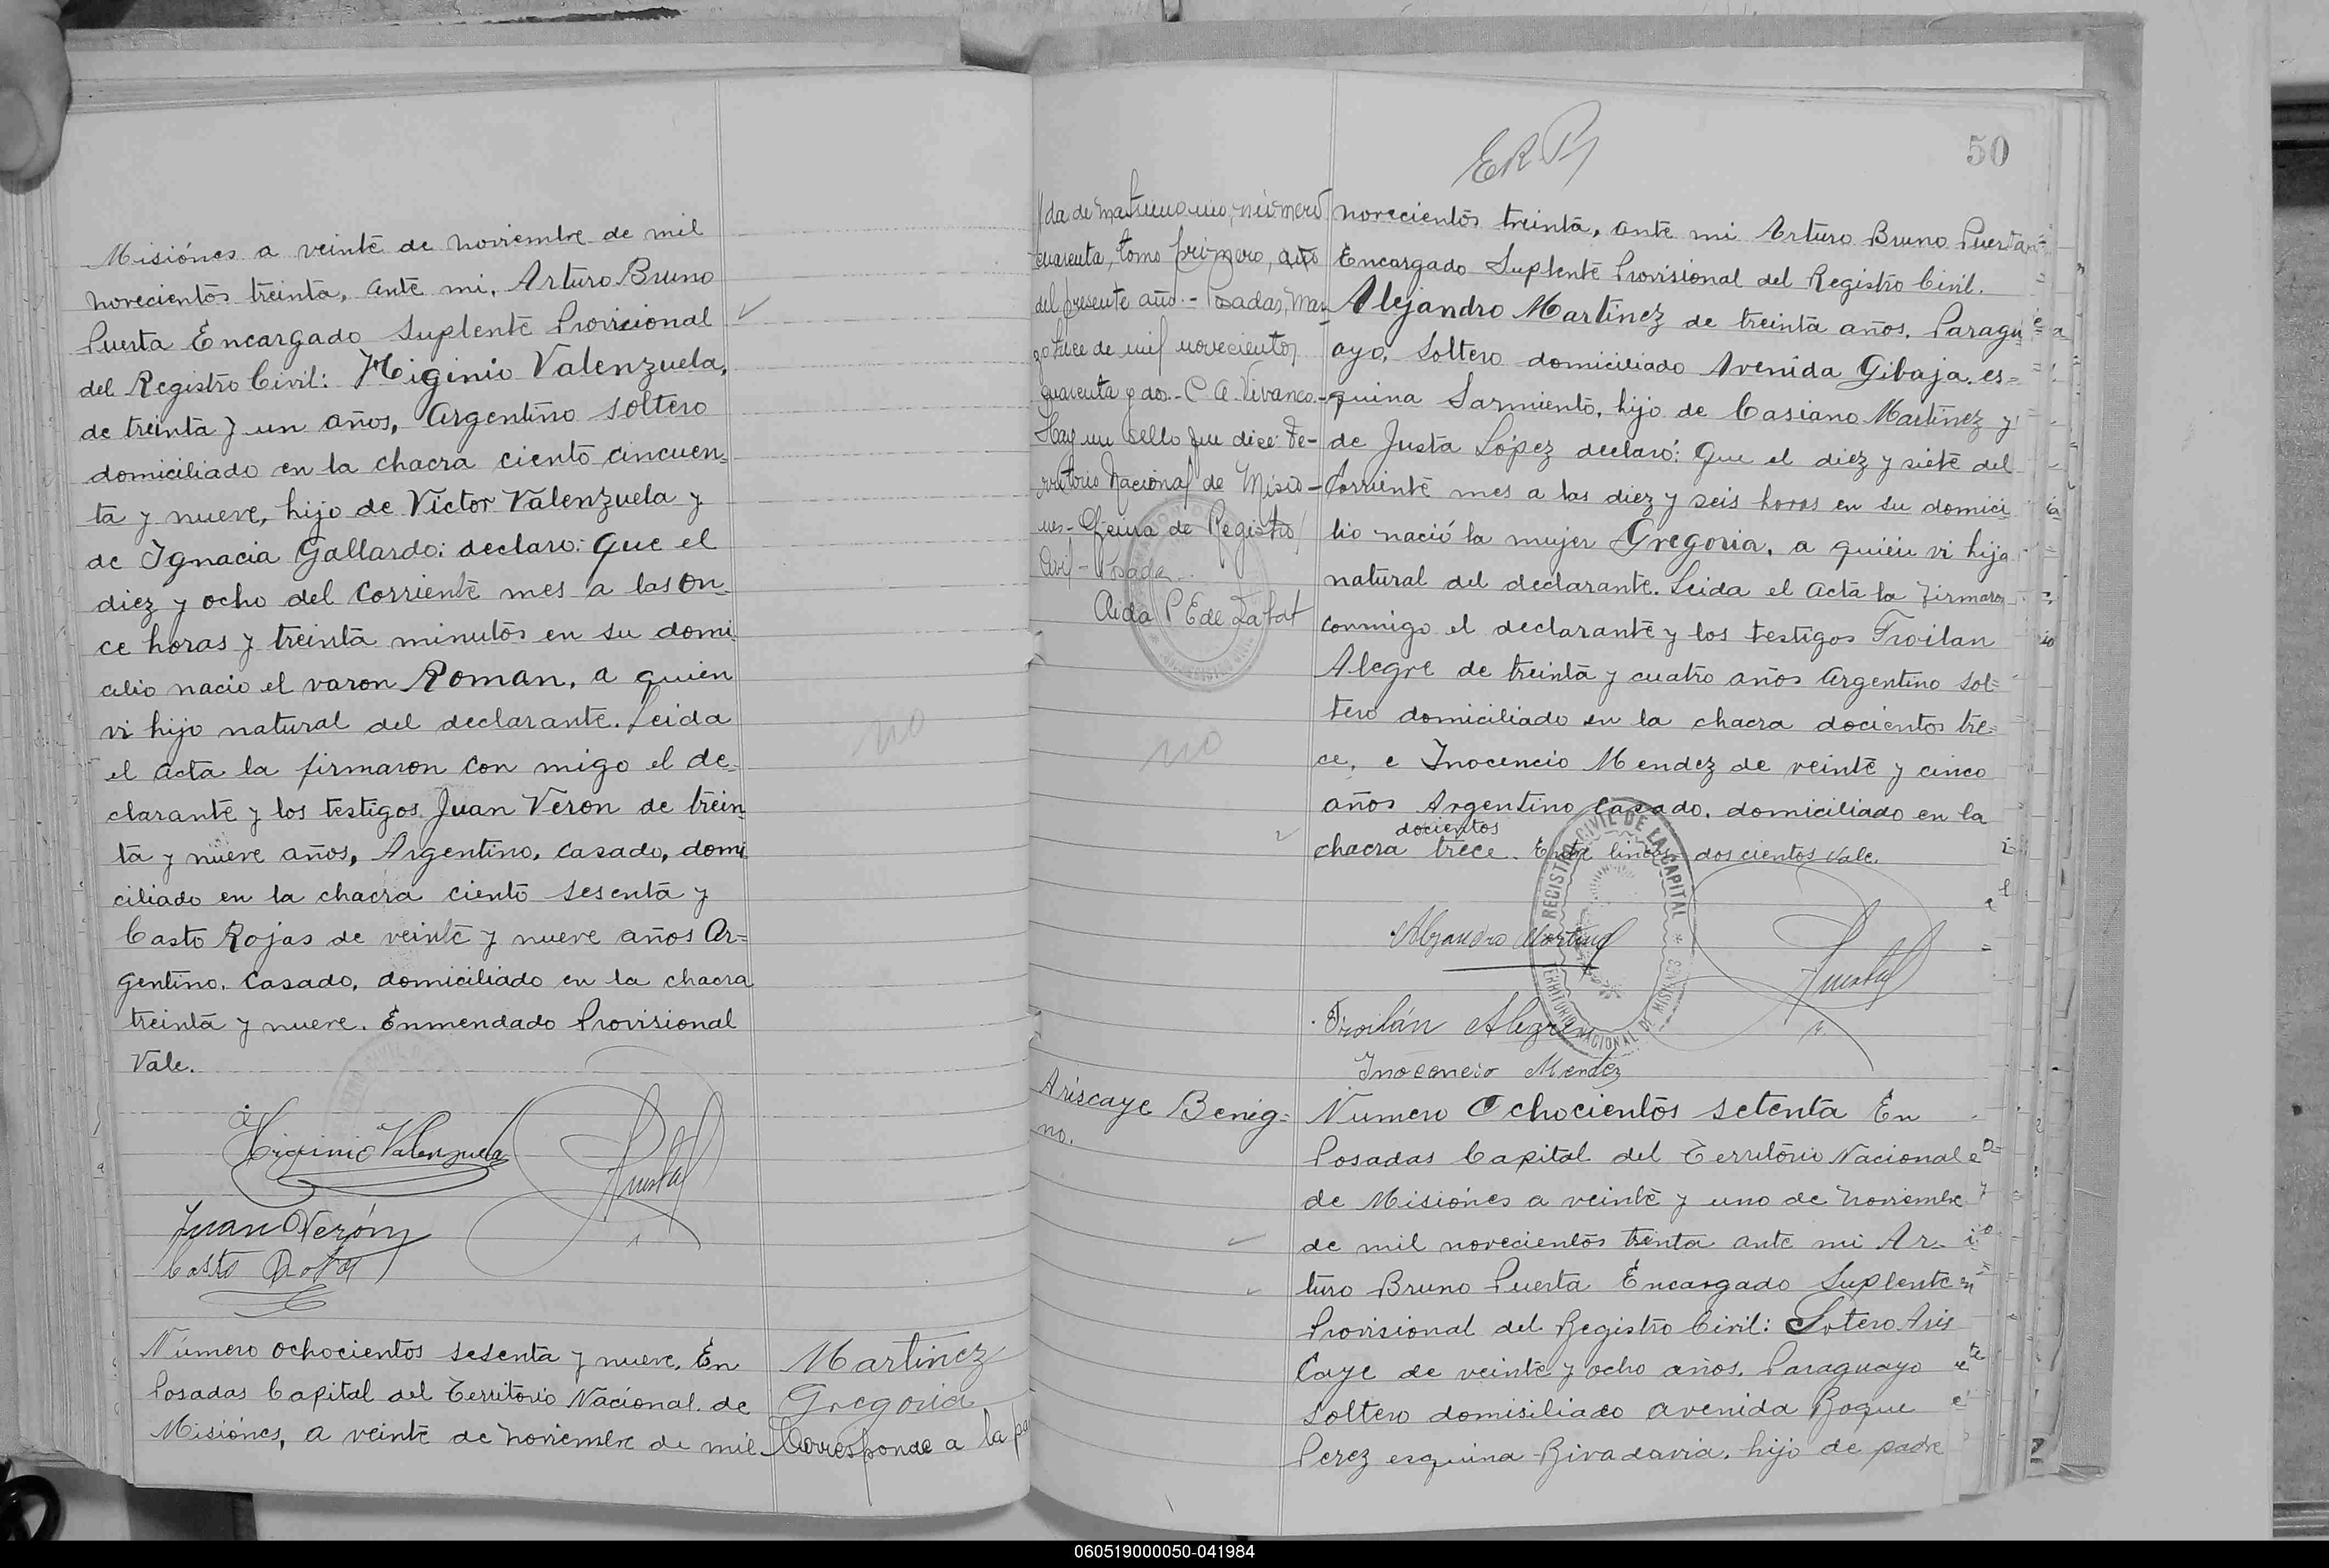 Misiónes a veinte de noviembre de mil
novecientos treinta, ante mi, Arturo Bruno
Puerta Encargado Suplente Provicional
del Registro Civil: Higinio Valenzuela,
de treinta y un años, Argentino soltero
domiciliado en la chacra ciento cincuen=
ta y nueve, hijo de Victor Valenzuela y
de Ignacia Gallardo: declaro: Que el
diez y ocho del corriente mes a las on-
ce horas y treinta minutos en su domi
cilio nacio el varon Roman, a quien
vi hijo natural del declarante. Leida
el acta la firmaron con migo el de=
clarante y los testigos Juan Veron de trein
ta y nueve años, Argentino, casado, domi
ciliado en la chacra ciento sesenta y
Casto Rojas de veinte y nueve años Ar=
gentino, casado, domiciliado en la chacra
treinta y nueve. Enmendado Provisional
Vale.
Higinio Valenzuela
Puerta
Juan Verón
Casto Rojas
Número ochocientos sesenta y nueve. En
Posadas Capital del Territorio Nacional de
Misiónes, a veinte de noviembre de mil
no
Martinez
Gregoria
Corresponde a la pa
50
/da de matrimonio, número
cuarenta, tomo primero,
del presente año.- Posadas, Mar
zo doce de mil novecientos
cuarenta y dos.- C A. Vivanco.-
Hay un sello que dice: Te-
rritorio Nacional de Misio-
nes- Oficina de Registro
Civil- Posadas
Aida P E de
no
novecientos treinta, ante mi Arturo Bruno Puerta
Encargado Suplente Provisional del Registro Civil.
Alejandro Martinez de treinta años, Paragu
ayo, soltero domiciliado Avenida Gibaja, es=
quina Sarmiento, hijo de Casiano Martinez y
de Justa López declaró: Que el diez y siete del
corriente mes a las diez y seis horas en su domici
lio nació la mujer Gregoria, a quien vi hija
natural del declarante. Leida el acta la firmaron
conmigo el declarante y los testigos Troilan
Alegre de treinta y cuatro años Argentino sol=
tero domiciliado en la chacra docientos tre=
ce, e Inocencio Mendez de veinte y cinco
años Argentino casado, domiciliado en la
docientos
chacra trece. Entre lineas dos cientos vale.
REGISTRO CIVIL DE LA CAPITAL
TERRITORIO NACIONAL DE MISIONES
Alejandro Martinez
Puerta
Troilán Alegre
Inocencio Mendez
Ariscaye Benig=
no.
Numero Ochocientos setenta En
Posadas Capital del Territorio Nacional
de Misiónes a veinte y uno de noviembre
de mil novecientos trenta ante mi Ar-
turo Bruno Puerta Encargado Suplente
Provisional del Registro Civil: Sotero Aris
caye de veinte y ocho años, Paraguayo
soltero domisiliado avenida Roque
Perez esquina Rivadavia, hijo de padre
060519000050-041984